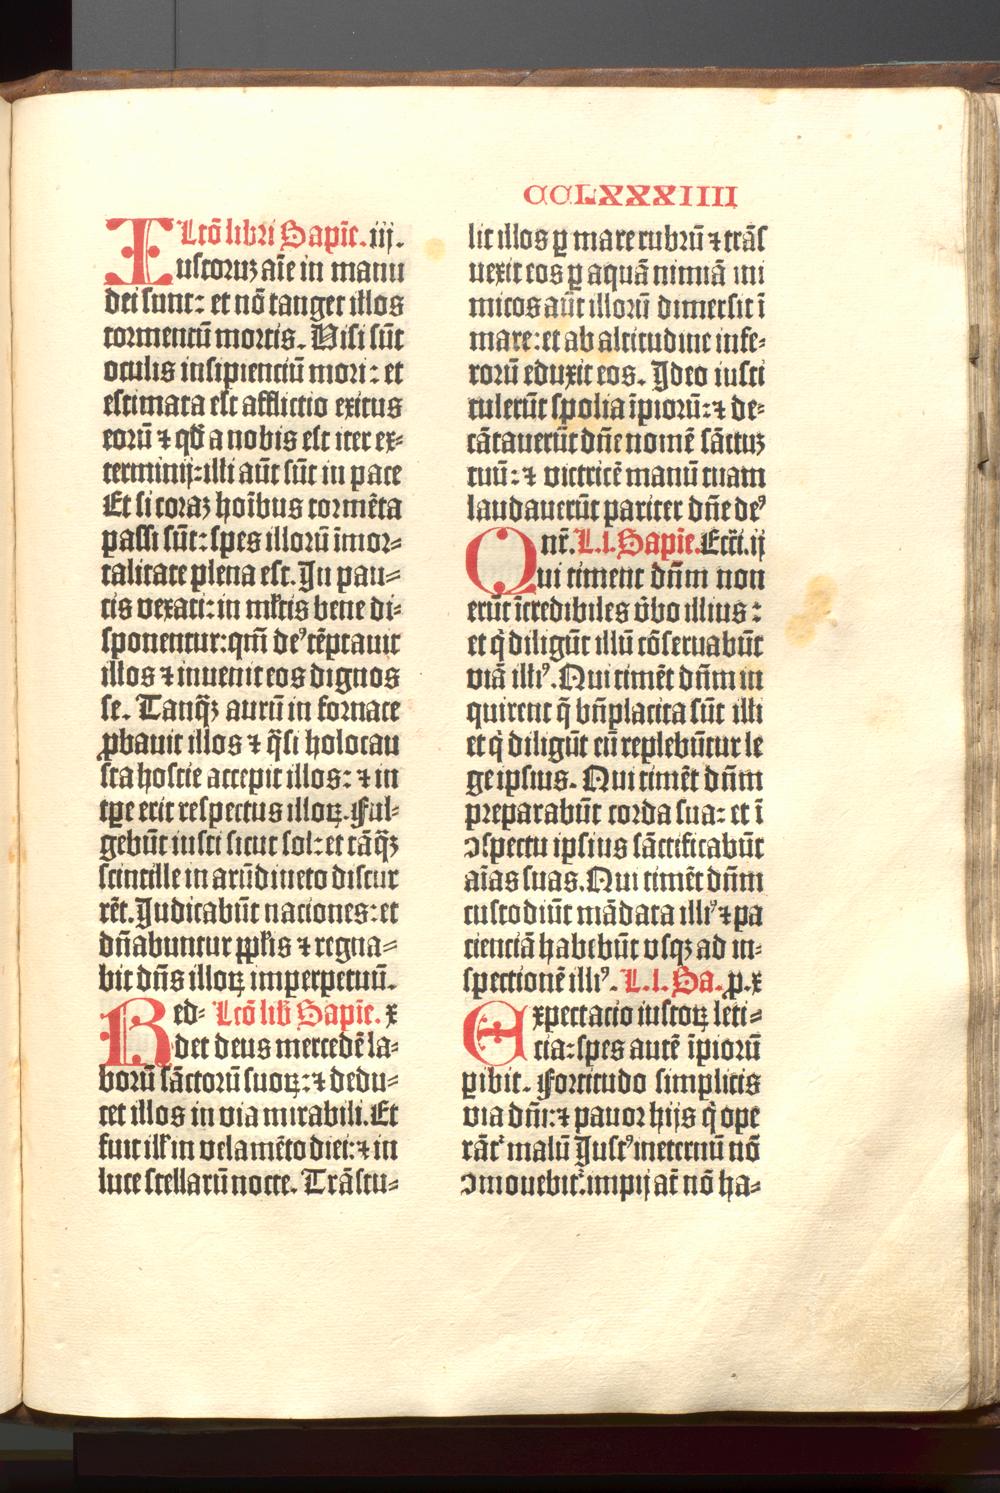 CCLXXXIIII
Lcō libri Sapīe. iij.
Iustoruꝫ aīe in manu
dei sunt: et nō tanget illos
tormentū mortis. Visi sūt
oculis insipientiū mori: et
estimata est afflictio exitus
eorū ⁊ qđ a nobis est iter ex⸗
terminij: illi aūt sūt in pace
Et si coraꝫ hoībus tormēta
passi sūt: spes illorū īmor⸗
talitate plena est. In pau⸗
cis vexati: in mĺtis bene di⸗
sponentur: qm̄ deꝰ tēptauit
illos ⁊ inuenit eos dignos
se. Tanq̄ꝫ aurū in fornace
ꝓbauit illos ⁊ q̄si holocau
sta hostie accepit illos: ⁊ in
tp̄e erit respectus illoꝝ. Ful⸗
gebūt iusti sicut sol: et tāq̄ꝫ
scintille in arūdineto discur
rēt. Iudicabūt nationes: et
dn̄abuntur ppĺis ⁊ regna⸗
bit dn̄s illoꝝ imperpetuū.
Red⸗ Lcō lib̄ Sapīe. x
det deus mercedē la⸗
borū sāctorū suoꝝ: ⁊ dedu⸗
cet illos in via mirabili. Et
fuit ilĺ in velamēto diei: ⁊ in
luce stellarū nocte. Trāstu⸗
lit illos ꝑ mare rubrū ⁊ trās
uexit eos ꝑ aquā nimiā ini
micos aūt illorū dimersit ī
mare: et ab altitudine infe⸗
rorū eduxit eos. Ideo iusti
tulerūt spolia īpiorū: ⁊ de⸗
cātauerūt dn̄e nomē sāctuꝫ
tuū: ⁊ victricē manū tuam
laudauerūt pariter dn̄e deꝰ
nr̄. L. l. Sapīe. Ecc̄i. ij
Qui timent dn̄m non
erūt īcredibiles v̄bo illius:
et q̇ diligūt illū cōseruabūt
viā illiꝰ. Qui timēt dn̄m in
quirent q̄ bn̄placita sūt illi
et q̇ diligūt eū replebūtur le
ge ipsius. Qui timēt dn̄m
preparabūt corda sua: et ī
ↄspectu ipsius sāctificabūt
aīas suas. Qui timēt dn̄m
custodiūt mādata illiꝰ ⁊ pa
cientiā habebūt vsqꝫ ad in⸗
spectionē illiꝰ. L. l. Sa. ꝓ. x
Expectacio iustoꝝ leti⸗
cia: spes autē īpiorū
ꝑibit. Fortitudo simplicis
via dn̄i: ⁊ pauor hijs q̇ ope
rāt᷑ malū Iustꝰ ineternū nō
ↄmouebit᷑. impij at̄ nō ha⸗